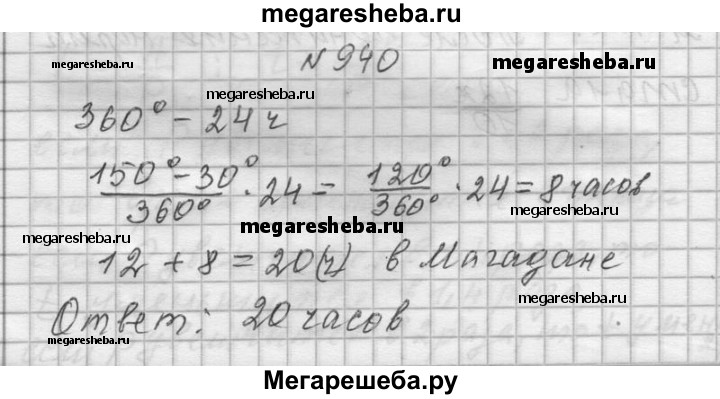 megaresheba.ru
№ 940
megaresheba.ru
megaresheba.ru
megaresheba.ru
360° – 24 ч
(150° – 30°)/360° · 24 = 120°/360° · 24 = 8 часов
megaresheba.ru
megaresheba.ru
megaresheba.ru
12 + 8 = 20(ч) в Магадане
megaresheba.ru
Ответ: 20 часов
Мегарешеба.ру